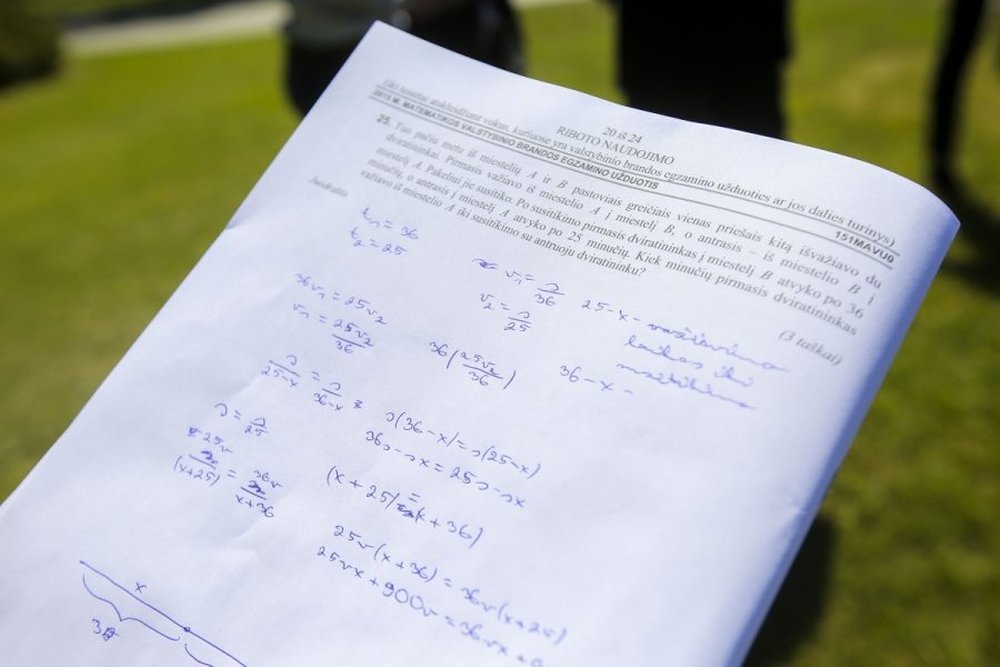 20 iš 24
RIBOTO NAUDOJIMO
(iki teisėtai atskleidžiant vokus, kuriuose yra valstybinio brandos egzamino užduoties ar jos dalies turinys)
2015 M. MATEMATIKOS VALSTYBINIO BRANDOS EGZAMINO UŽDUOTIS 151MAVU0
25. Tuo pačiu metu iš miestelių A ir B pastoviais greičiais vienas priešais kitą išvažiavo du
dviratininkai. Pirmasis važiavo iš miestelio A į miestelį B, o antrasis – iš miestelio B į
miestelį A. Pakeliui jie susitiko. Po susitikimo pirmasis dviratininkas į miestelį B atvyko po 36
minučių, o antrasis į miestelį A atvyko po 25 minučių. Kiek minučių pirmasis dviratininkas
važiavo iš miestelio A iki susitikimo su antruoju dviratininku?
(3 taškai)
Juodraštis
t₁ = 36
t₂ = 25
v₁ = s/36
v₂ = s/25
25 - x -
laikas iki
36 - x -
36v₁ = 25v₂
v₁ = 25v₂/36
36(25v₂/36)
s/25-x = s/36-x
s(36-x) = s(25-x)
36s - sx = 25s - sx
s = /25
25v/(x+25) = 36v/x+36
(x + 25) = (x + 36)
25v(x+36) = 36v(x+25)
25vx + 900v = 36vx +
x